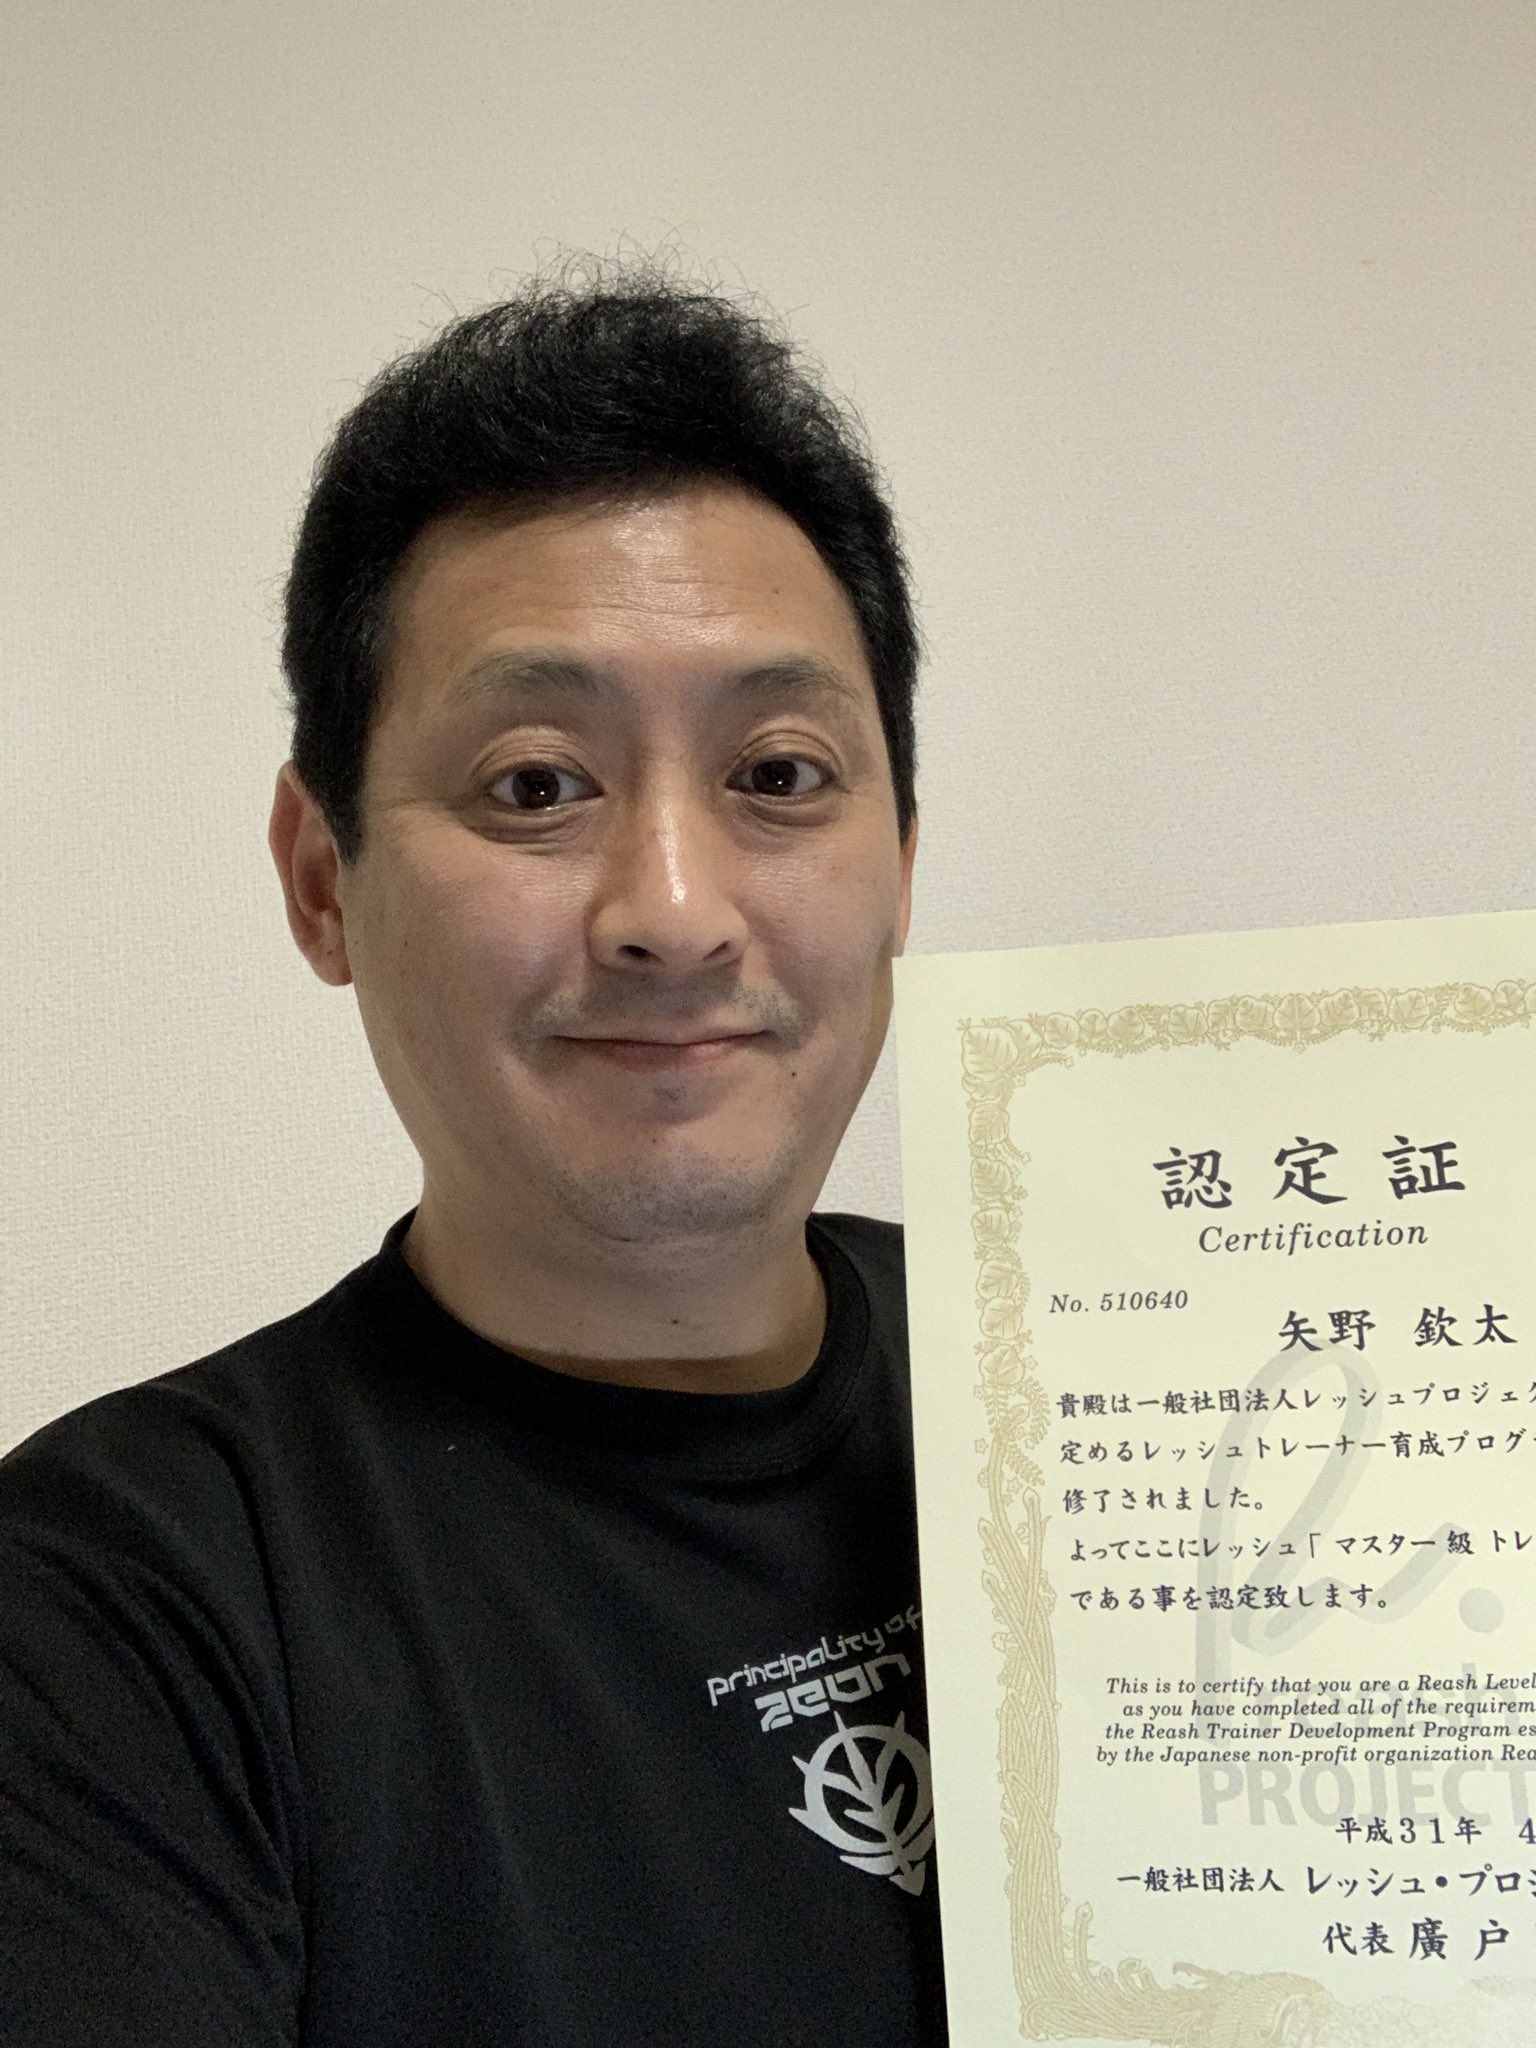 principality of
zeon
認定証
Certification
No. 510640
矢野 欽太
貴殿は一般社団法人レッシュプロジェク
定めるレッシュトレーナー育成プログ
修了されました。
よってここにレッシュ「 マスター 級 トレ
である事を認定致します。
This is to certify that you are a Reash Level
as you have completed all of the requirem
the Reash Trainer Development Program es
by the Japanese non-profit organization Rea
PROJECT
平成31年 4
一般社団法人 レッシュ・プロジ
代表 廣 戸